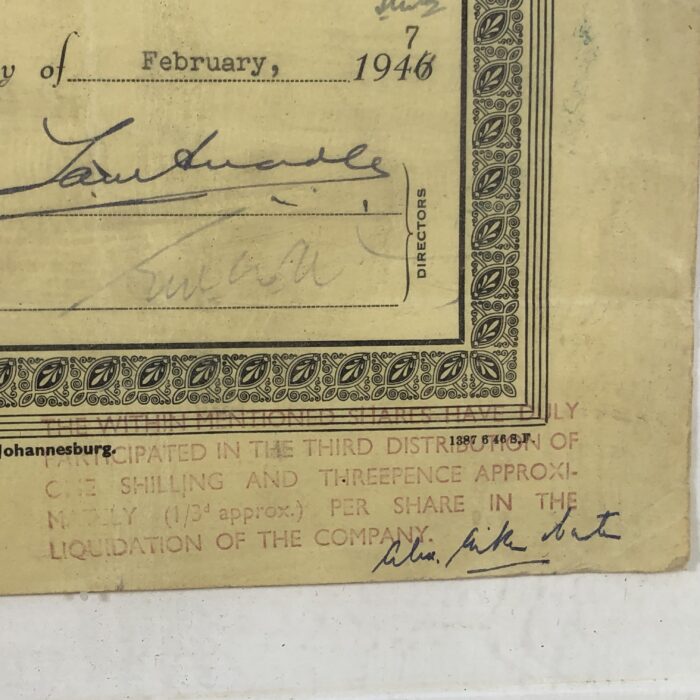 y of February, 1946 7
DIRECTORS
Johannesburg. 1387 6 46 S.F.
THE WITHIN MENTIONED SHARES HAVE DULY
PARTICIPATED IN THE THIRD DISTRIBUTION OF
ONE SHILLING AND THREEPENCE APPROXI-
MATELY (1/3d approx.) PER SHARE IN THE
LIQUIDATION OF THE COMPANY.